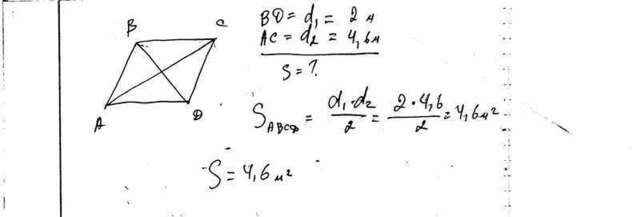 B C
A D
BD = d₁ = 2 м
AC = d₂ = 4,6 м
S = ?
S_ABCD = d₁·d₂/2 = 2·4,6/2 = 4,6 м²
S = 4,6 м²